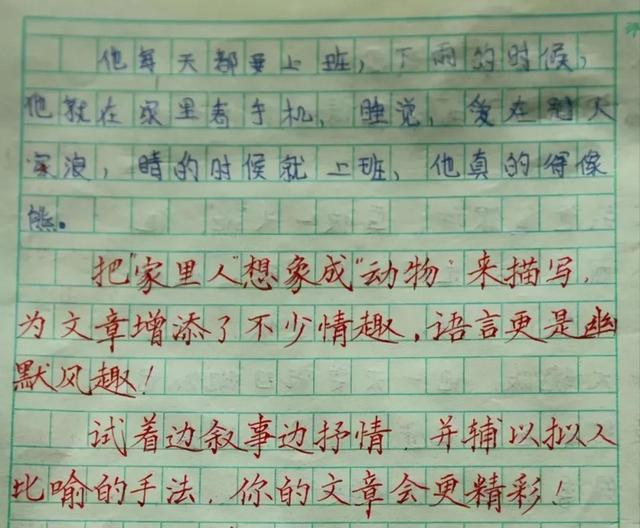 他每天都要上班，下雨的时候，
他就在家里看手机、睡觉，爱在
浪，晴的时候就上班，他真的得像
熊。
把“家里人”想象成“动物”来描写，
为文章增添了不少情趣，语言更是幽
默风趣！
试着边叙事边抒情，并辅以拟人
比喻的手法，你的文章会更精彩！